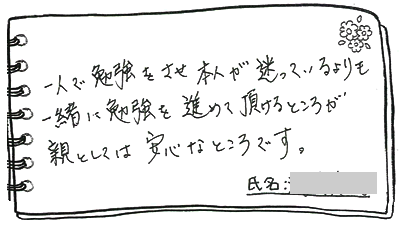 一人で勉強をさせ本人が迷っているよりも
一緒に勉強を進めて頂けるところが
親としては安心なところです。
氏名: